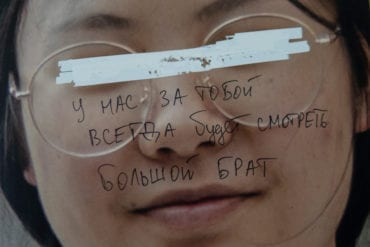 У НАС ЗА ТОБОЙ
ВСЕГДА будет СМОТРЕТЬ
БОЛЬШОЙ БРАТ